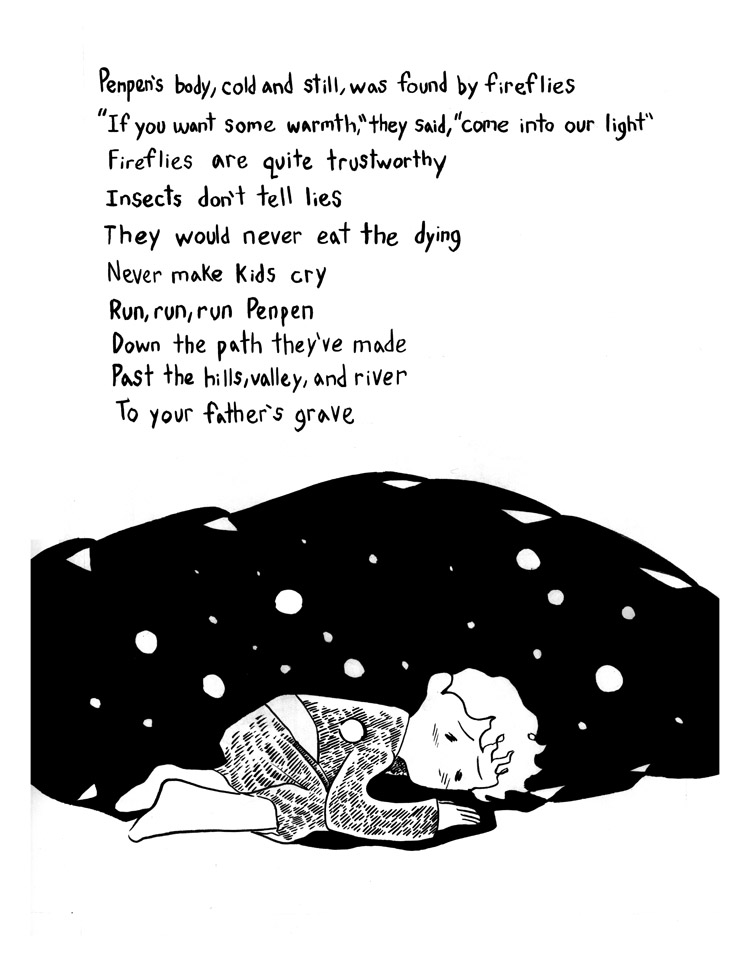 Penpen's body, cold and still, was found by fireflies
"If you want some warmth," they said, "come into our light"
Fireflies are quite trustworthy
Insects don't tell lies
They would never eat the dying
Never make kids cry
Run, run, run Penpen
Down the path they've made
Past the hills, valley, and river
To your father's grave